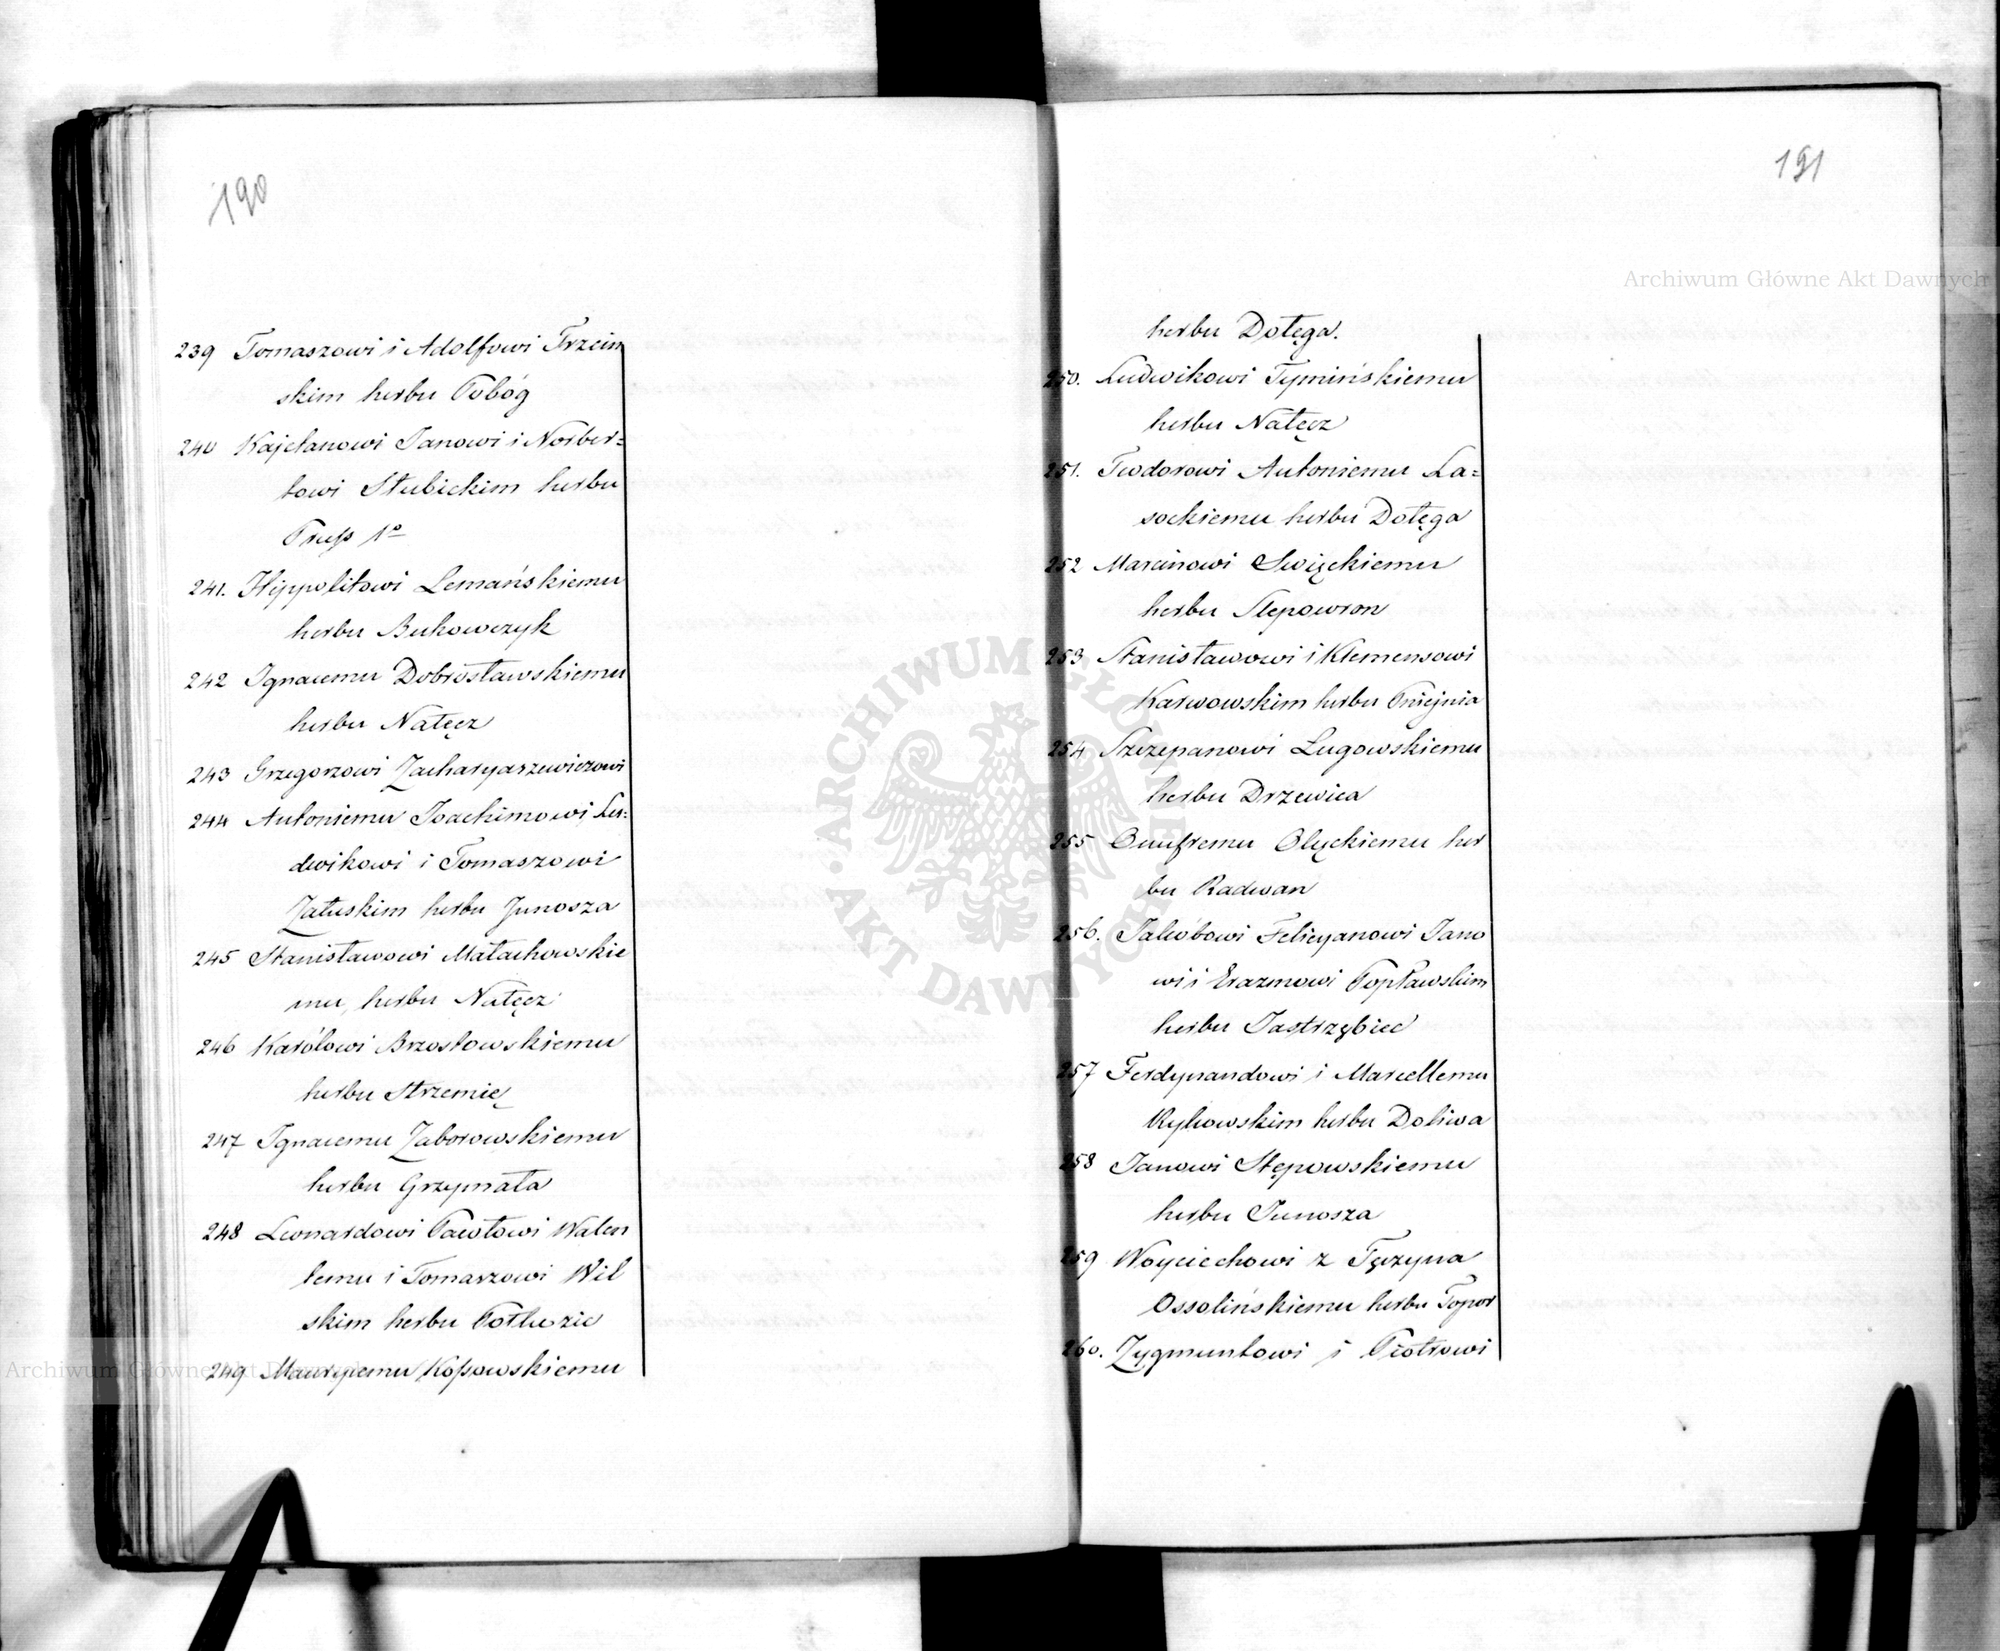 190
239 Tomaszowi i Adolfowi Trzciń
skim herbu Pobóg
240 Kajetanowi Janowi i Norber=
towi Słubickim herbu
Pruss 1o
241. Hippolitowi Lemańskiemu
herbu Bukowczyk
242 Ignacemu Dobrosławskiemu
herbu Nałęcz
243 Grzegorzowi Zacharyaszewiczowi
244 Antoniemu Joachimowi Lu=
dwikowi i Tomaszowi
Załuskim herbu Junosza
245 Stanisławowi Małachowskie
mu, herbu Nałęcz
246 Karólowi Brzostowskiemu
herbu Strzemię
247 Ignacemu Zaborowskiemu
herbu Grzymała
248 Leonardowi Pawłowi Walen
temu i Tomaszowi Wil
skim herbu Pothuzie
249 Maurycemu Kossowskiemu
191
herbu Dołęga.
250. Ludwikowi Tymińskiemu
herbu Nałęcz
251. Teodorowi Antoniemu La=
sockiemu herbu Dołęga
252 Marcinowi Swięckiemu
herbu Slepowron
253 Stanisławowi i Klemensowi
Karwowskim herbu Pniejnia
254 Szczepanowi Lugowskiemu
herbu Drzewica
255 Onufremu Olęckiemu her
bu Radwan
256. Jakóbowi Felicyanowi Jano
wi i Erazmowi Popławskim
herbu Jastrzębiec
257 Ferdynandowi i Marcellemu
Rykowskim herbu Doliwa
258 Janowi Stępowskiemu
herbu Junosza
259 Woyciechowi z Tęczyna
Ossolińskiemu herbu Topor
260. Zygmuntowi i Piotrowi
Archiwum Główne Akt Dawnych
Archiwum Główne Akt Dawnych
ARCHIWUM GŁÓWNE AKT DAWNYCH